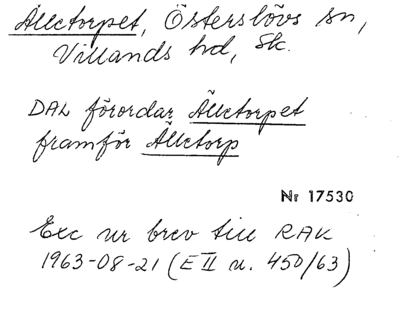 Älletorpet, Österslövs sn,
Villands hd, Sk.
DAL förordar Älletorpet
framför Älletorp
Nr 17530
Exc ur brev till RAK
1963-08-21 (E II u. 450/63)